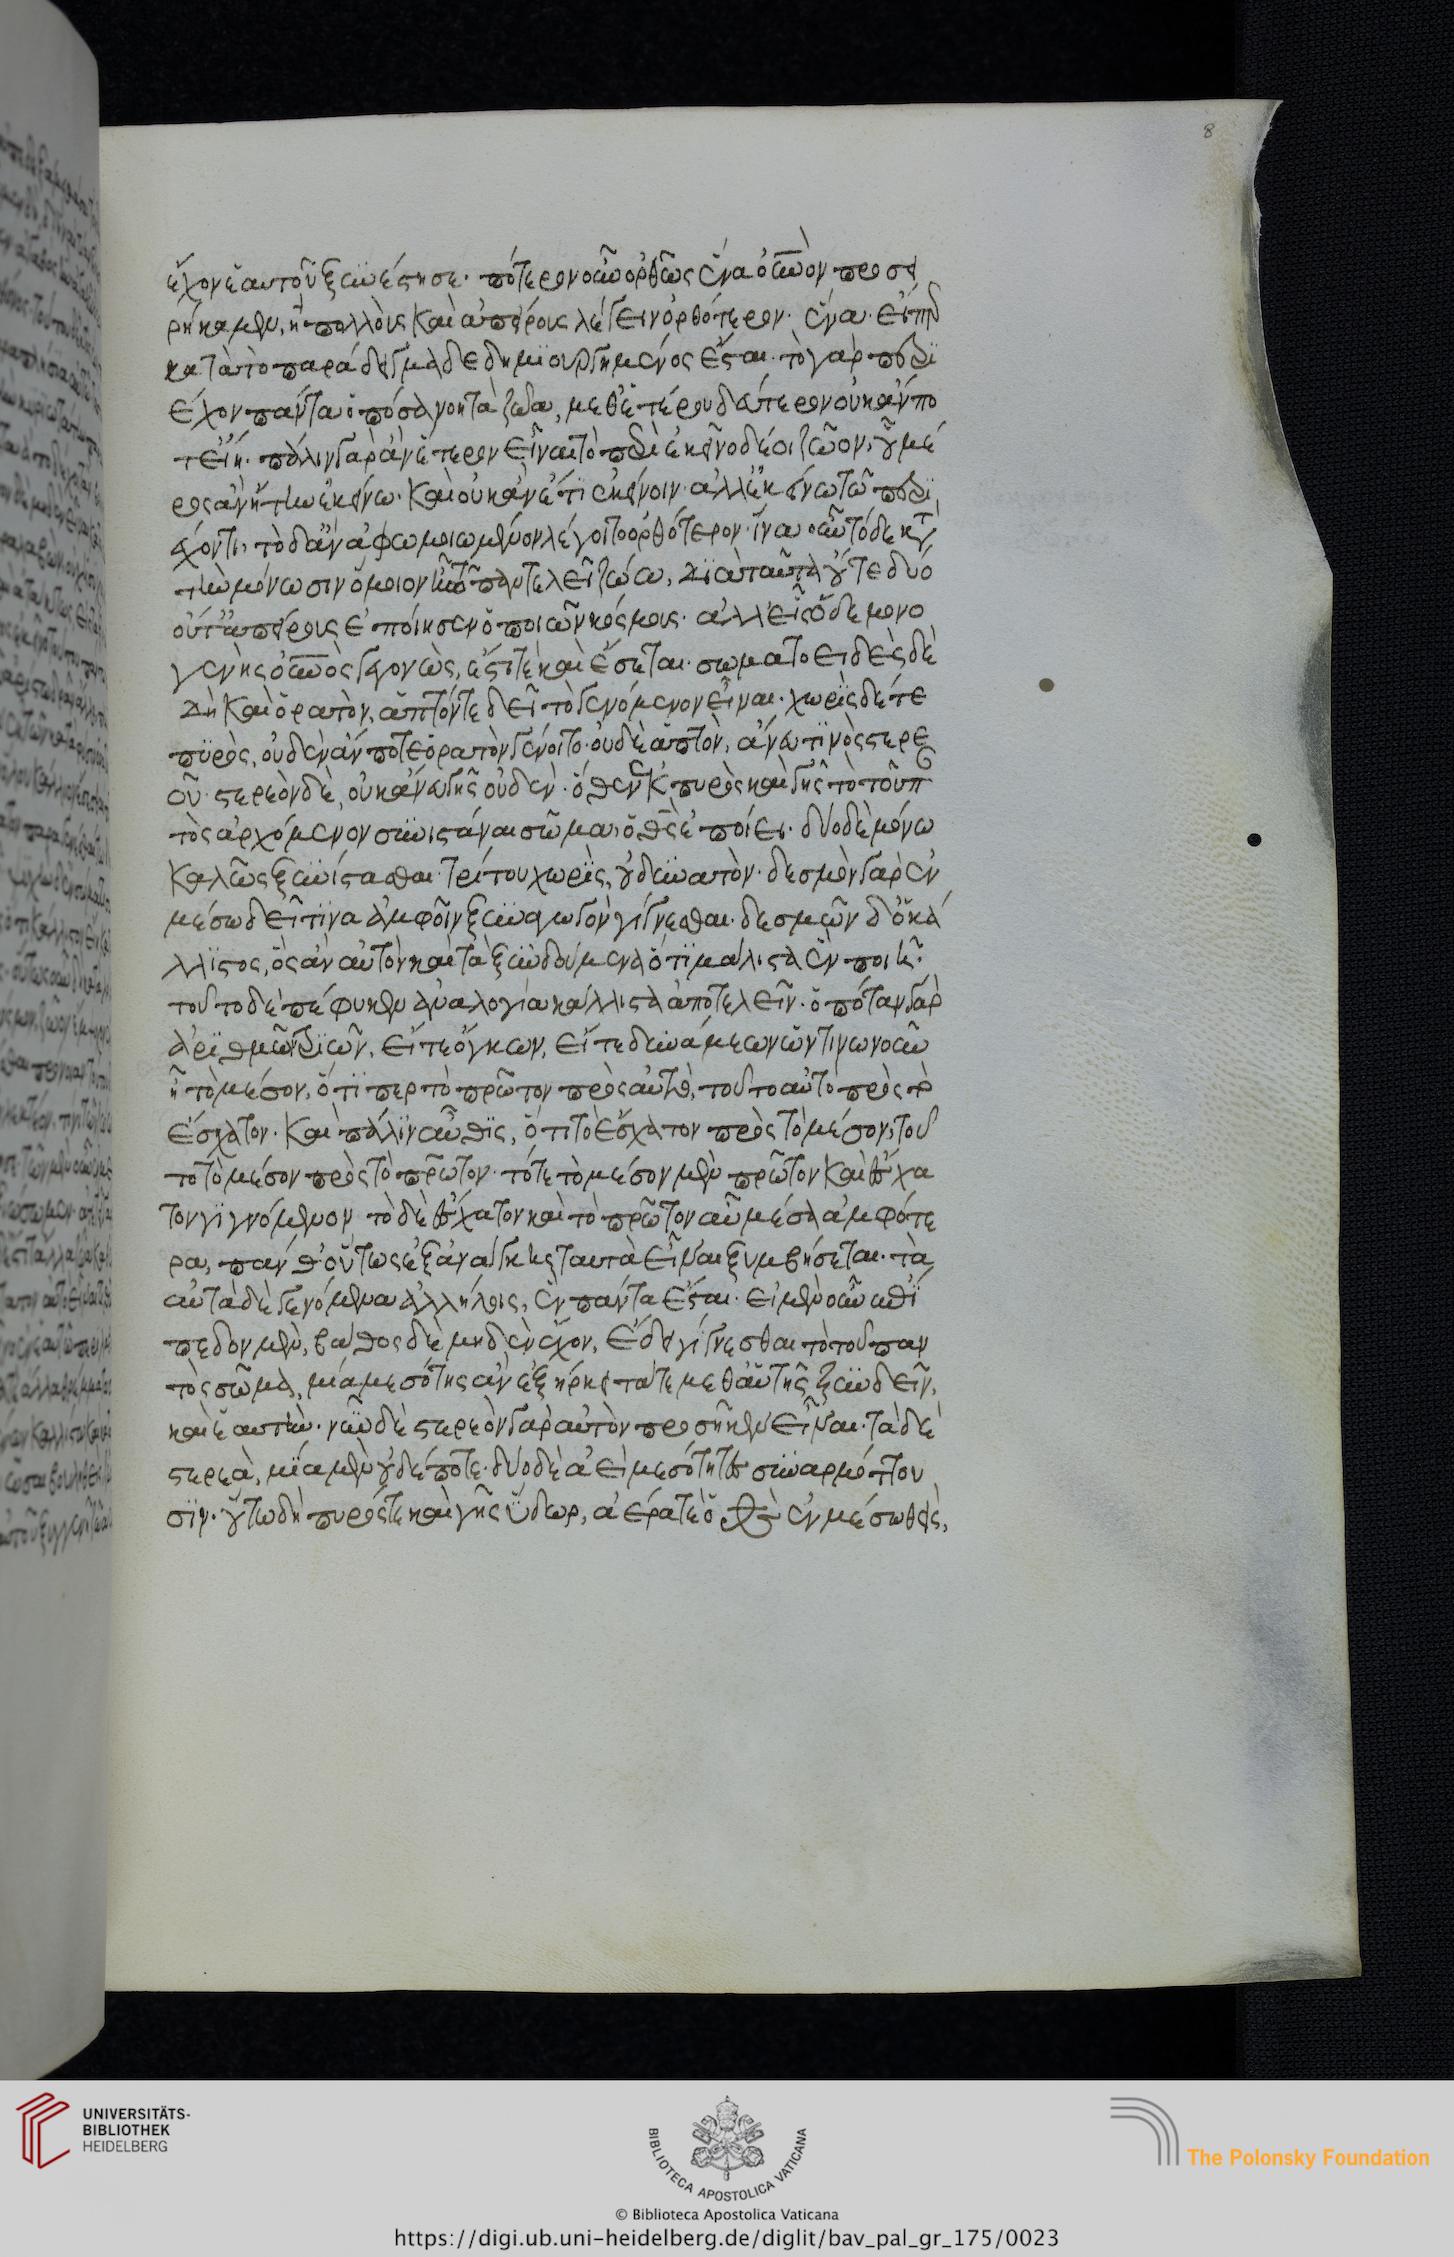 ἔχον ἑαυτοῦ ξυνέστησε· πότερον οὖν ὀρθῶς ἕνα οὐνὸν προσει
ρήκαμεν, ἢ πολλοὺς καὶ ἀπείρους λέγειν ὀρθότερον· ἕνα· εἴπερ
κατὰ τὸ παράδειγμα δεδημϊουργημένος ἔσται· τὸ γὰρ περϊ
έχον πάντα ὁπόσα νοητὰ ζῶα, μεθ' ἑτέρου δεύτερον οὐκ ἄν πο
τ' εἴη· πάλιν γὰρ ἂν ἕτερον εἶναι τὸ περὶ ἐκείνο δέοι ζῶον, οὗ μέ
ρος ἂν ἤτην ἐκείνω· καὶ οὐκ ἂν ἔτϊ ἐκείνοιν· ἀλλ' ἐκείνω τῶ περϊ
έχοντι, τὸ δ' ἂν ἀφωμοιωμένον λέγοιτο ὀρθότερον· ἵνα οὖν τόδε κατὰ
τὴν μόνωσιν ὅμοιον ἦ τῶ παντελεῖ ζώω, δϊὰ ταῦτα οὔτε δύο
οὔτ' ἀπείρους ἐποίησεν ὁ ποιῶν κόσμους· ἀλλ' εἷς ὅδε μονο
γενὴς οὐνὸς γεγονὼς, ἔστι τὲ καὶ ἔσεται· σωματοειδὲς δὲ
δὴ καὶ ὁρατὸν, ἁπτόν τε δεῖ τὸ γενόμενον εἶναι· χωρὶς δέ τε
πϋρὸς, οὐδὲν ἄν ποτε ὁρατὸν γένοιτο· οὐδὲ ἁπτὸν, ἄνευ τϊνὸς στερε
οῦ· στερεὸν δὲ, οὐκ ἄνευ γῆς οὐδέν· ὅθεν ἐκ πυρὸς καὶ γῆς τὸ τοῦ παν
τὸς ἀρχόμενον συνιστάναι σῶμα, ὁ θς ἐποίει· δύο δὲ μόνω
καλῶς ξυνίστασθαι τρίτου χωρὶς, οὐ δυνατὸν· δεσμὸν γὰρ ἐν
μέσω δεῖ τϊνα ἀμφοῖν ξυναγωγὸν γίγνεσθαι· δεσμῶν δ' ὁ κά
λλϊστος, ὃς ἂν αὑτὸν καὶ τὰ ξυνδούμενα ὅτϊ μάλιστα ἓν ποιῆ·
τοῦτο δὲ πέφυκεν ἀναλογία κάλλιστα ἀποτελεῖν· ὁπόταν γὰρ
ἀρϊθμῶν τρϊῶν, εἴτε ὄγκων, εἴτε δυνάμεων ὧν τινων οὖν
ἦ τὸ μέσον, ὅτϊ περ τὸ πρῶτον πρὸς αὐτὸ, τοῦτο αὐτὸ πρὸς τὸ
ἔσχατον· καὶ πάλϊν αὖθϊς, ὅτι τὸ ἔσχατον πρὸς τὸ μέσον, τοῦ
το τὸ μέσον πρὸς τὸ πρῶτον· τότε τὸ μέσον μὲν πρῶτον καὶ ἔσχα
τον γϊγνόμενον τὸ δὲ ἔσχατον καὶ τὸ πρῶτον αὖ μέσα ἀμφότε
ρα, πάνθ' οὕτως ἐξ ἀνάγκης ταυτὰ εἶναι ξυμβήσεται· τὰ
αὐτὰ δὲ γενόμενα ἀλλήλοις, ἓν πάντα ἔσται· εἰ μὲν οὖν ἐπί
πεδον μὲν, βάθος δὲ μηδὲν ἔχον, ἔδει γίγνεσθαι τὸ τοῦ παν
τὸς σῶμα, μία μεσότης ἂν ἐξήρκει τά τε μεθ' αὑτῆς ξυνδεῖν,
καὶ ἑαυτὴν· νῦν δὲ στερεὸν γὰρ αὐτὸν προσῆκεν εἶναι· τὰ δὲ
στερεὰ, μϊα μὲν οὐδέποτε· δύο δὲ ἀεὶ μεσότητες συναρμόττου
σϊν· οὕτω δὴ πυρός τε καὶ γῆς ὕδωρ, ἀέρα τὲ ὁ θς ἐν μέσω θεὶς,
8
UNIVERSITÄTS-
BIBLIOTHEK
HEIDELBERG
BIBLIOTECA APOSTOLICA VATICANA
The Polonsky Foundation
© Biblioteca Apostolica Vaticana
https://digi.ub.uni-heidelberg.de/diglit/bav_pal_gr_175/0023